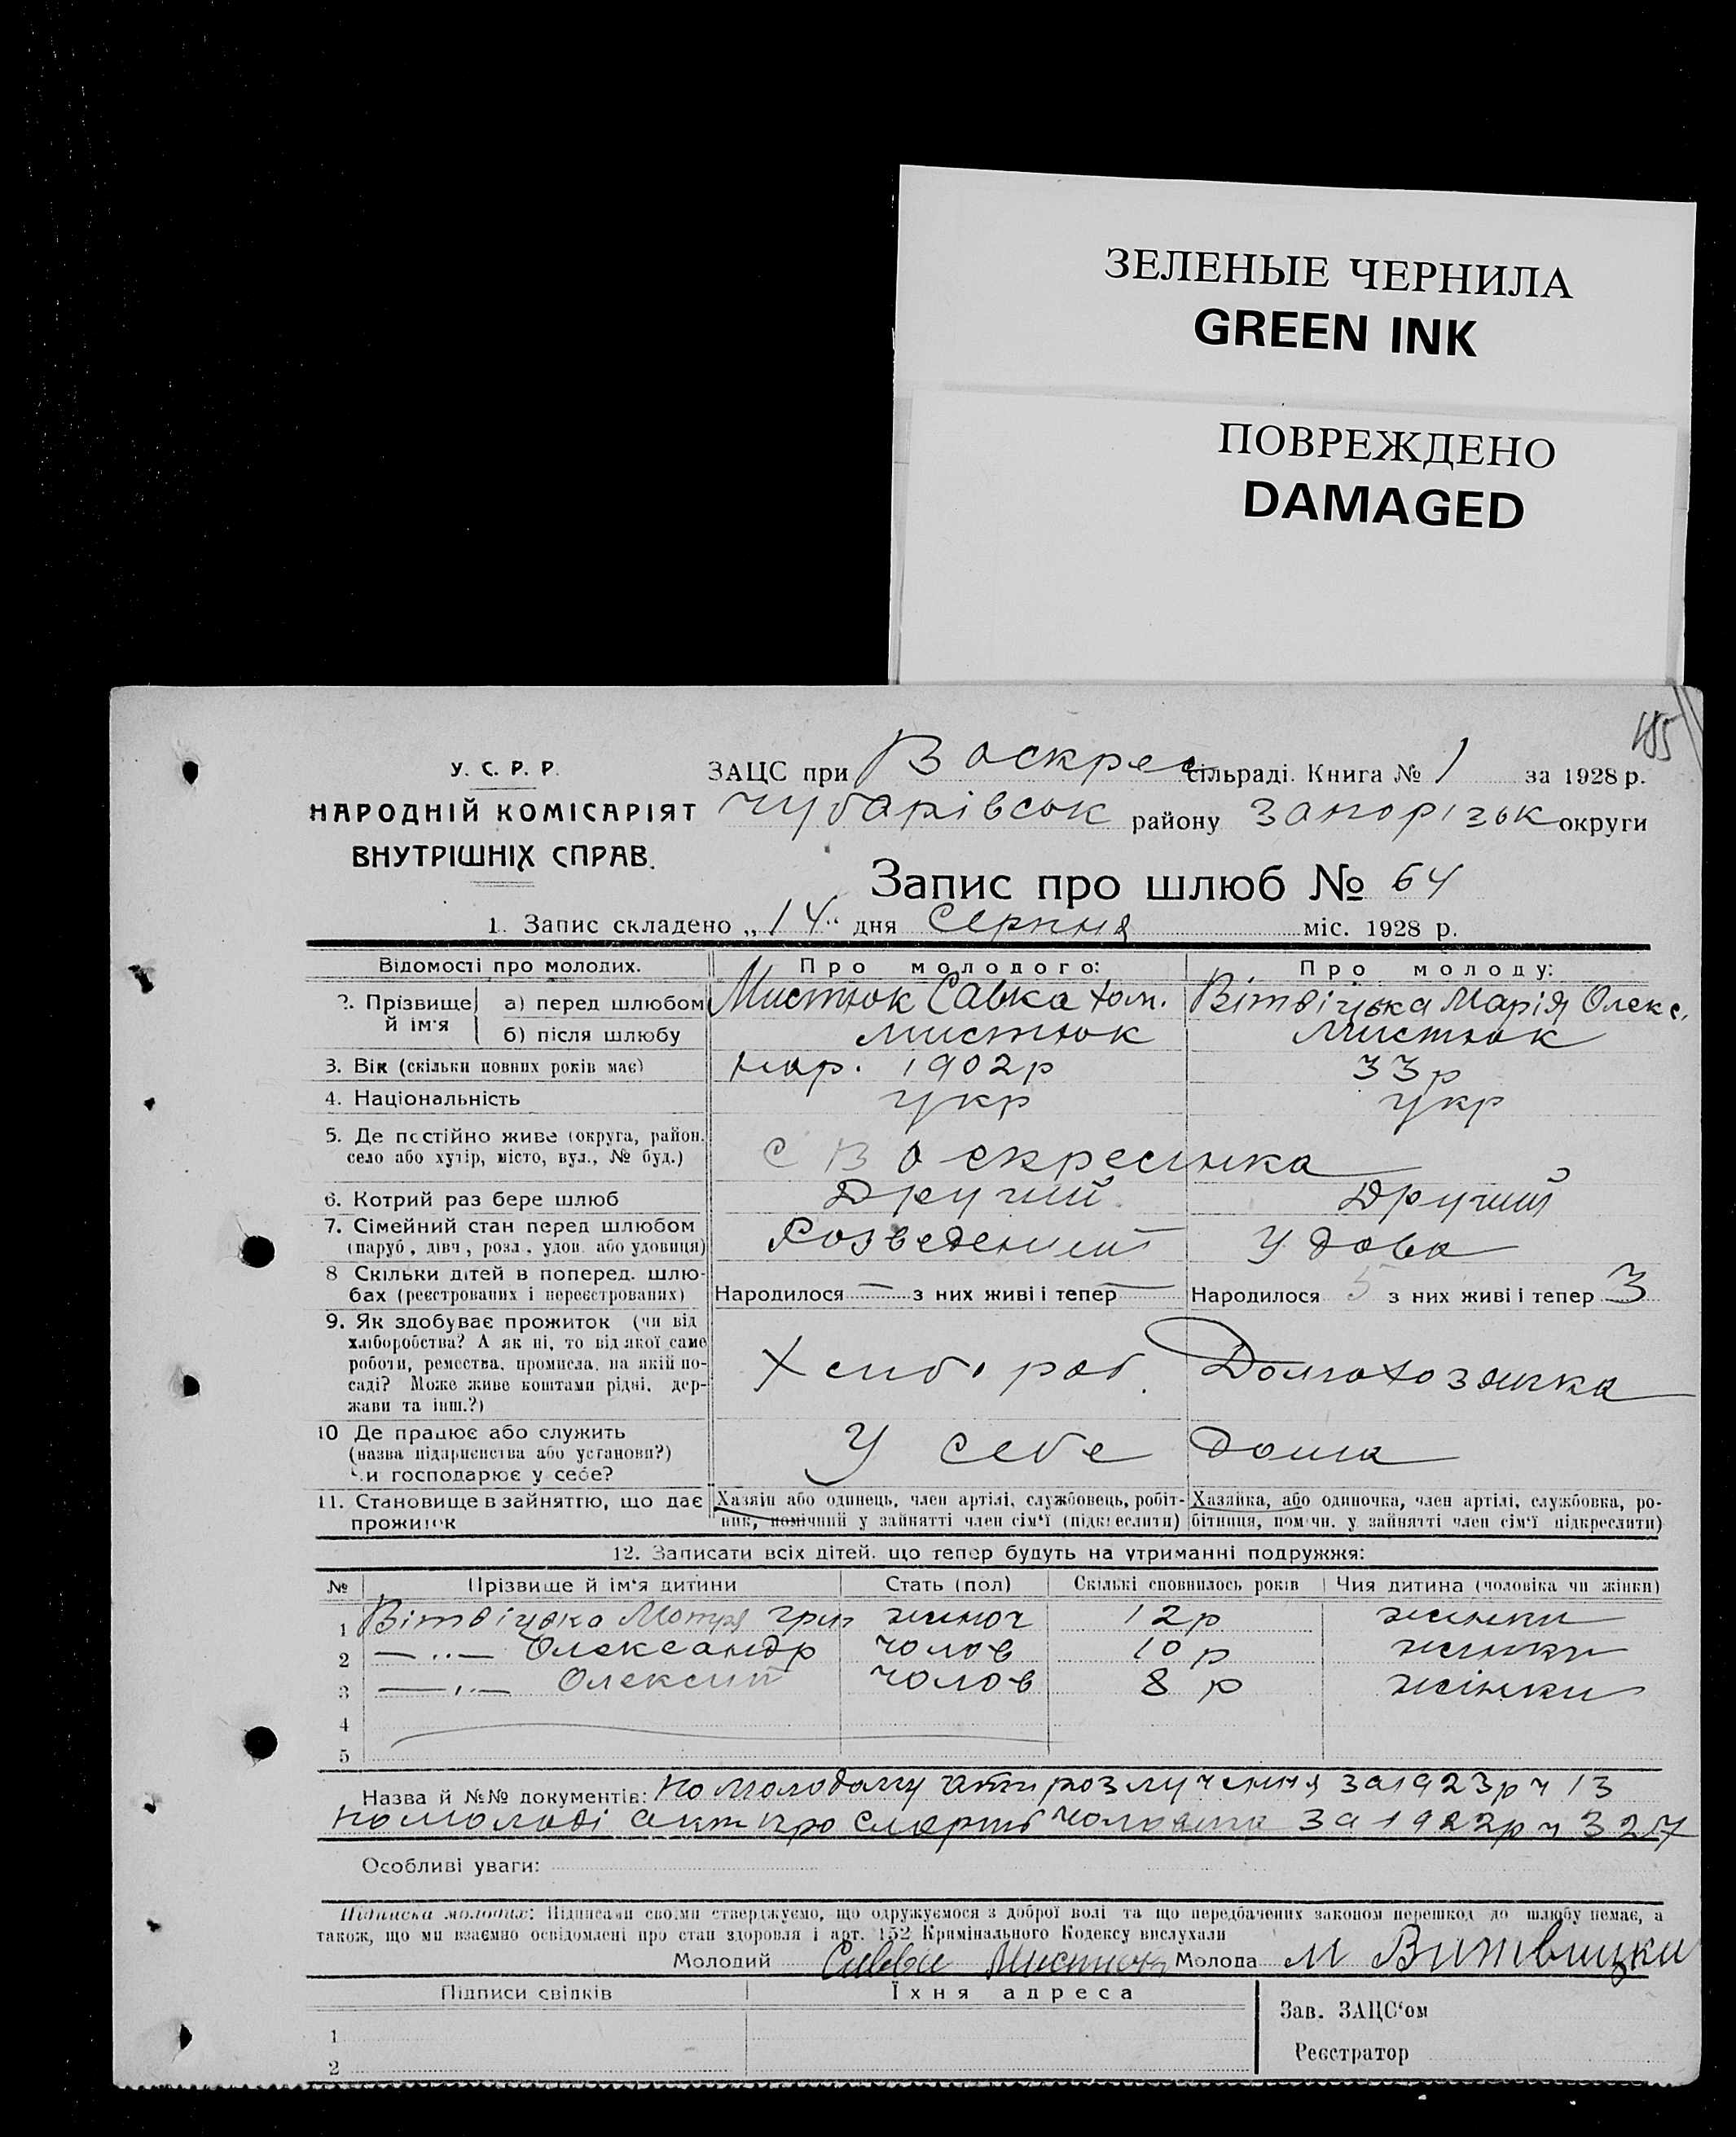 ЗЕЛЕНЫЕ ЧЕРНИЛА
GREEN INK
ПОВРЕЖДЕНО
DAMAGED
У. С. Р. Р.
НАРОДНІЙ КОМІСАРІЯТ
ВНУТРІШНІХ СПРАВ.
ЗАЦС при Воскрес сільраді. Книга № 1 за 1928 р.
Чубарівськ району Запорізьк округи
Запис про шлюб № 64
1. Запис складено „14“ дня Серпня міс. 1928 р.
Відомості про молодих. Про молодого: Про молоду:
2. Прізвище й ім'я а) перед шлюбом Мистюк Савка Хом. Вітвіцька Марія Олекс.
б) після шлюбу Мистюк Мистюк
3. Вік (скільки повних років має) нар. 1902р 33р
4. Національність укр укр
5. Де постійно живе (округа, район, село або хутір, місто, вул., № буд.) с Воскресинка
6. Котрий раз бере шлюб Другий Другий
7. Сімейний стан перед шлюбом (паруб, дівч, розл, удов. або удовиця) Розведений Удова
8 Скільки дітей в поперед. шлюбах (реєстрованих і нереєстрованих) Народилося — з них живі і тепер — Народилося 5 з них живі і тепер 3
9. Як здобуває прожиток (чи від хліборобства? А як ні, то від якої саме роботи, ремества, промисла, на якій посаді? Може живе коштами рідні, держави та інш.?) Хлибороб. Домохозяика
10 Де працює або служить (назва підприємства або установи?) Чи господарює у себе? У себе дома
11. Становище в зайняттю, що дає прожиток
Хазяїн або одинець, член артілі, службовець, робітник, помічний у зайнятті член сім'ї (підкреслити)
Хазяйка, або одиночка, член артілі, службовка, робітниця, помічн. у зайнятті член сім'ї підкреслити)
12. Записати всіх дітей, що тепер будуть на утриманні подружжя:
№ Прізвище й ім'я дитини Стать (пол) Скількі сповнилось років Чия дитина (чоловіка чи жінки)
1 Вітвіцька Мотря Григ жиноч 12р жинки
2 —..— Олександр чолов 10р жинки
3 —..— Олексий чолов 8р жінки
4
5
Назва й №№ документів: по молодому акти розлучення за 1923р ч 13
по молоді акт про смерть чоловика за 1922р ч 327
Особливі уваги:
Підписка молодих: Підписами своїми стверджуємо, що одружуємося з доброї волі та що передбачених законом перешкод до шлюбу немає, а
також, що ми взаємно освідомлені про стан здоровля і арт. 152 Кримінального Кодексу вислухали
Молодий Савва Мистюк Молода М Витвицки
Підписи свідків Їхня адреса
1
2
Зав. ЗАЦС'ом
Реєстратор